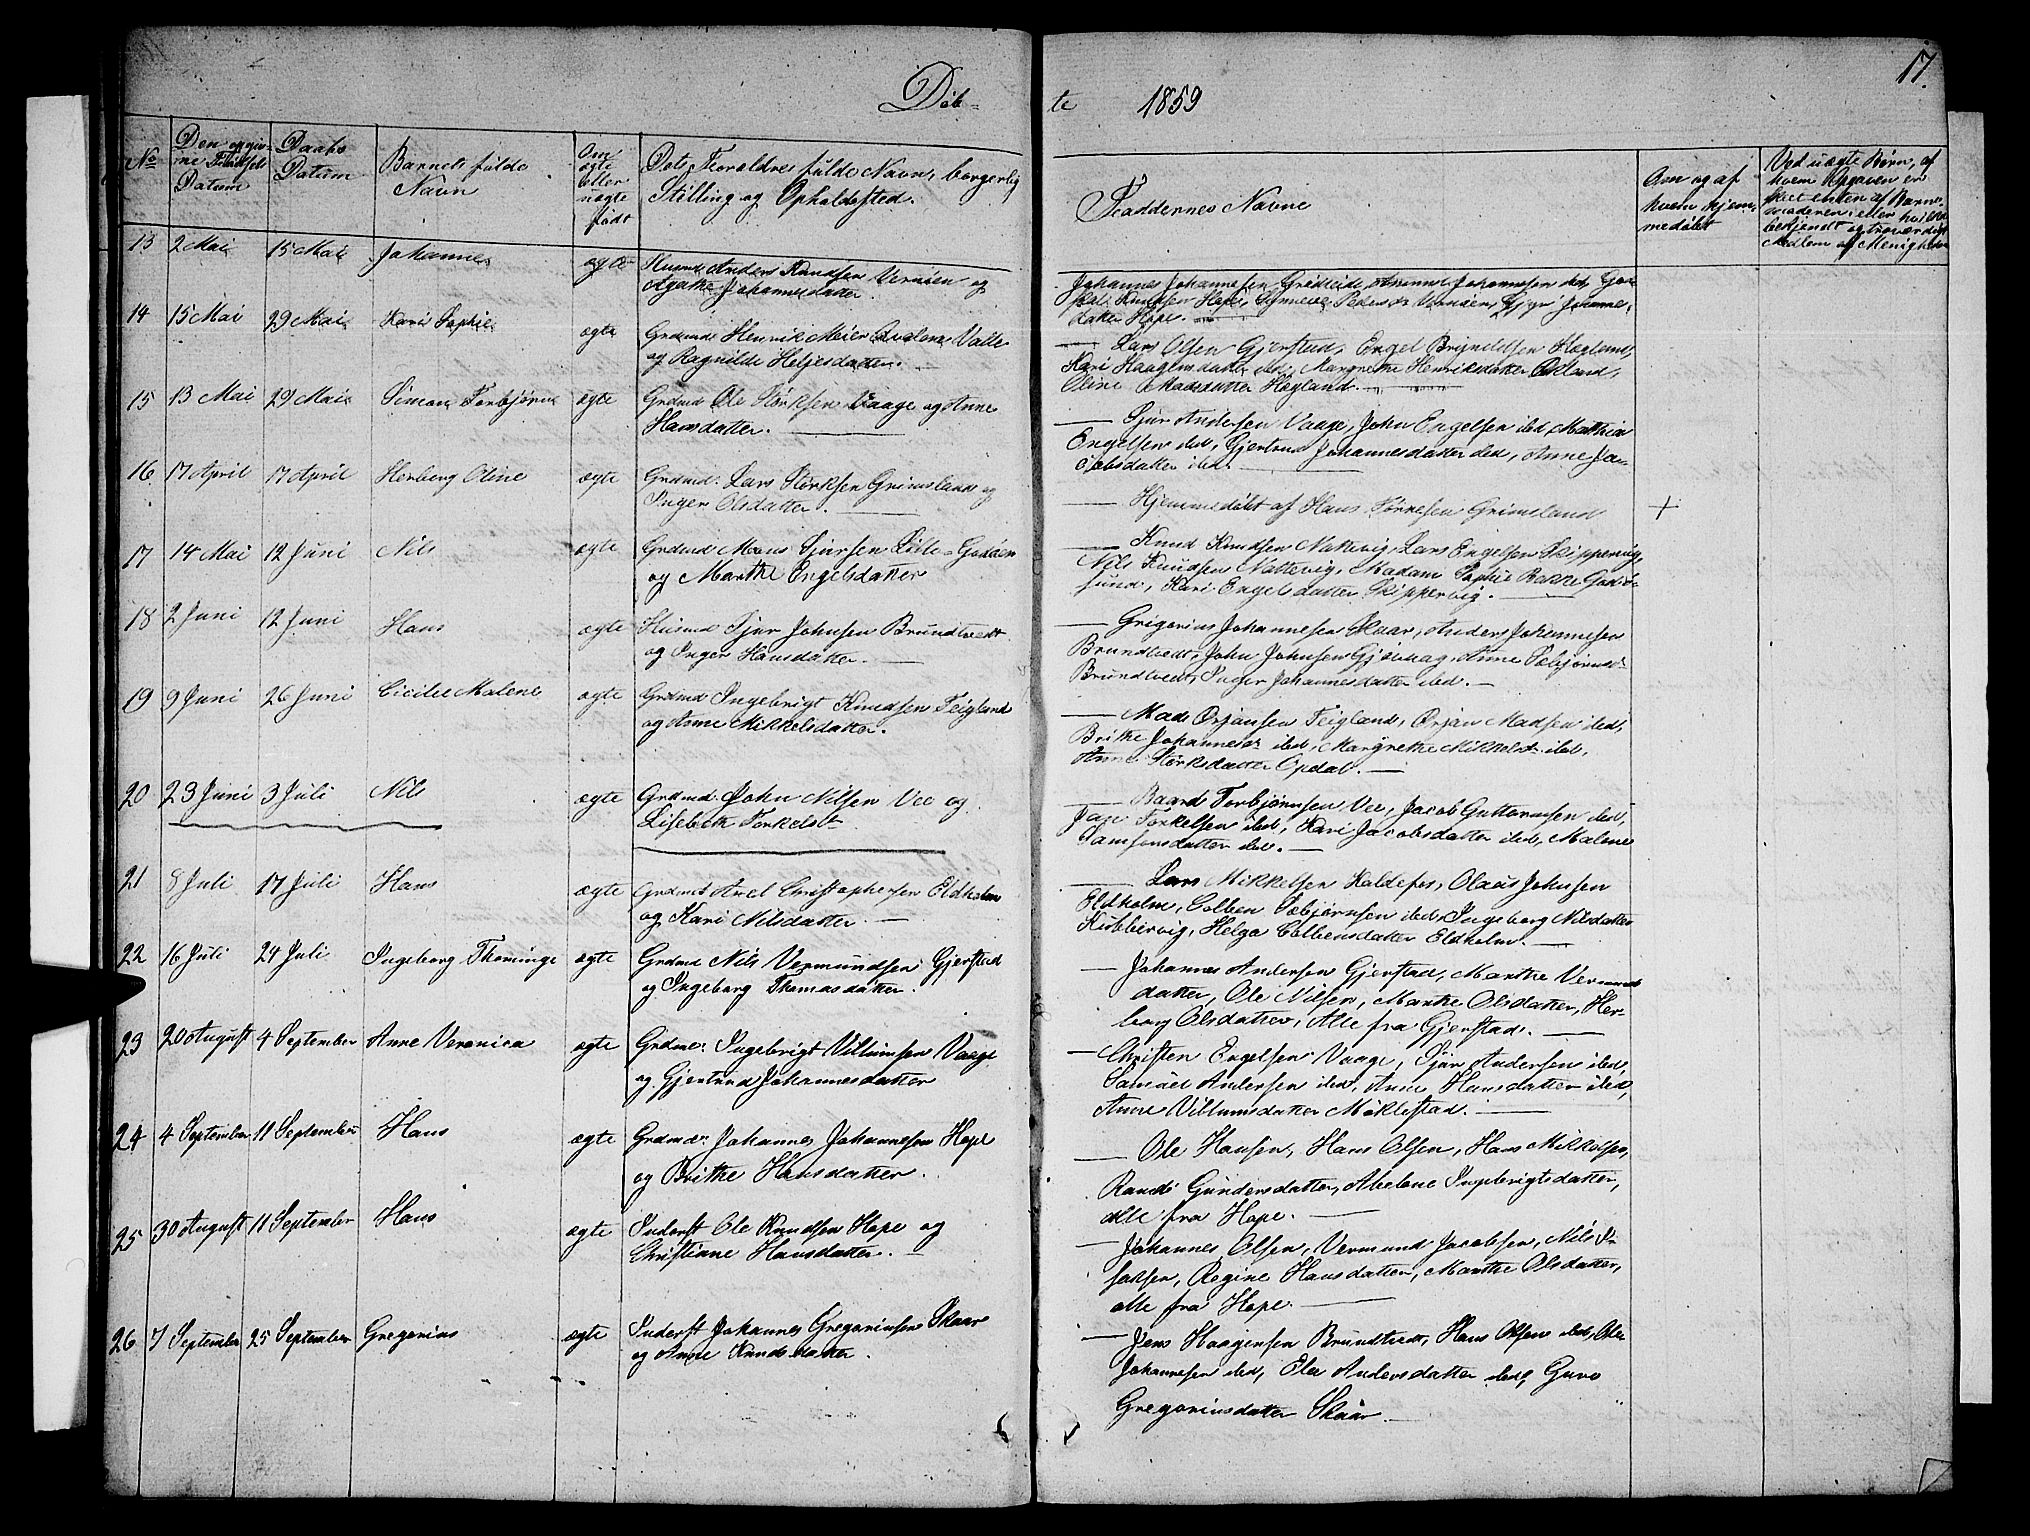 Døb-
te 1859
17.
No
Den opgiv-
ne Fødsels
Datum
Daabs
Datum
Barnets fulde
Navn
Om
ægte
eller
uægte
født
Dets Forældres fulde Navn, borgerlig
Stilling og Opholdssted.
Faddernes Navne
Om og af
hvem hjem-
medøbt
Ved uægte Børn, af
hvem Opgaven er
skeet enten af Barne-
faderen eller
bekjendt og troværdigt
Medlem af Menigheden
13 2 Mai 15 Mai Johannes ægte Husmd Anders Knudsen Vernøen og
Agathe Johannesdatter.
Johannes Johannesen Johannesen ibd,
Knudsen Hope, Synneva Vernøen,
datter Hope.
14 15 Mai 29 Mai Kari Sophie ægte Grdmd Henrik Meier Valle
og Ragnilde Heljesdatter.
Lars Olsen Gjerstad, Engel Brynildsen Høgland,
Kari ibd, Margrethe Henriksdatter
Oline Høgland.
15 13 Mai 29 Mai Simon Torbjørn ægte Grdmd Ole Størksen Vaage og Anne
Hansdatter.
Sjur Andersen Vaage, John Engelsen ibd, Mathia
Engelsen ibd, Gjertrud Johannesdatter ibd, Anne Ja-
cobsdatter ibd.
16 17 April 17 April Herborg Oline ægte Grdmd. Lars Størksen Grimsland og
Inger Olsdatter.
Hjemmedøbt af Hans Tørresen Grimsland +
17 14 Mai 12 Juni Nils ægte Grdmd Mons Sjursen Lille-Godøen
og Marthe Engelsdatter
Knud Knudsen Nattevig, Lars Engelsen Skippervig,
Nils Knudsen Nattevig, Madam Sophie Bakke Godø-
sund, Kari Engelsdatter Skippervig.
18 2 Juni 12 Juni Hans ægte Husmd Sjur Johnsen Brundtvedt
og Inger Hansdatter.
Grigorius Johannesen Skaar, Anders Johannesen
Brundtvedt, John Johnsen Anne
Brundtvedt, Inger Johannesdatter ibd.
19 9 Juni 26 Juni Cicilie Malene ægte Grdmd Ingebrigt Knudsen Teigland
og Anne Mikkelsdatter.
Mads Ørjansen Teigland, Ørjan Madsen ibd,
Brithe Johannesdr ibd, Margrethe Mikkelsdr ibd,
Anne Størksdatter Opdal.
20 23 Juni 3 Juli Nils ægte Grdmd. John Nilsen Vee og
Lisebeth Torkelsdr
Baard Torbjørnsen Vee, Jacob Guttormsen ibd,
Torkelsen ibd, Kari Jacobsdatter ibd, Malene
Samsonsdatter ibd.
21 8 Juli 17 Juli Hans ægte Grdmd Axel Christophersen Eldholm
og Kari Nilsdatter.
Lars Mikkelsen Haldefos, Olaus Johnsen
Eldholm, Colben Tobjørnsen ibd, Ingeborg Nilsdatter
Kubbervig, Helga Colbensdatter Eldholm.
22 16 Juli 24 Juli Ingeborg Thominge ægte Grdmd Nils Vermundsen Gjerstad
og Ingeborg Thomasdatter.
Johannes Andersen Gjerstad, Marthe Vermunds
datter, Ole Nilsen, Marthe Olsdatter, Her-
borg Olsdatter, Alle fra Gjerstad.
23 20 August 4 September Anne Veronica ægte Grdmd. Ingebrigt Villumsen Vaage
og Gjertrud Johannesdatter
Christen Engelsen Vaage, Sjur Andersen ibd,
Samuel Andersen ibd, Anne Hansdatter ibd,
Anne Villumsdatter Møklestad.
24 4 September 11 September Hans ægte Grdmd. Johannes Johannesen Hope
og Brithe Hansdatter.
Ole Hansen, Hans Olsen, Hans Mikkelsen,
Randi Gundersdatter, Abelone Ingebrigtsdatter,
alle fra Hope.
25 30 August 11 September Hans ægte Inderst Ole Knudsen Hope og
Christiane Hansdatter.
Johannes Olsen, Vermund Jacobsen, Nils I-
saksen, Regine Hansdatter, Marthe Olsdatter,
alle fra Hope.
26 7 September 25 September Gregorius ægte Inderst Johannes Gregoriusen Skaar
og Anne Knudsdatter.
Jens Haagensen Brundtvedt, Hans Olsen ibd, Ole
Johannesen ibd, Elen Andersdatter ibd, Guro
Gregoriusdatter Skaar.